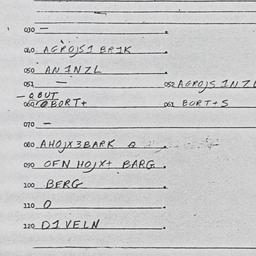 030 —
040 AGROJS1 BR1K
050 AN 1NZL
051 — 052 AGROJS 1NZL
— @BUT
060 @BORT+ 061 BORT+S
070 —
080 AHOJX3BARK @
090 OFN HOJX+ BARG
100 BERG
110 O
120 D1VELN